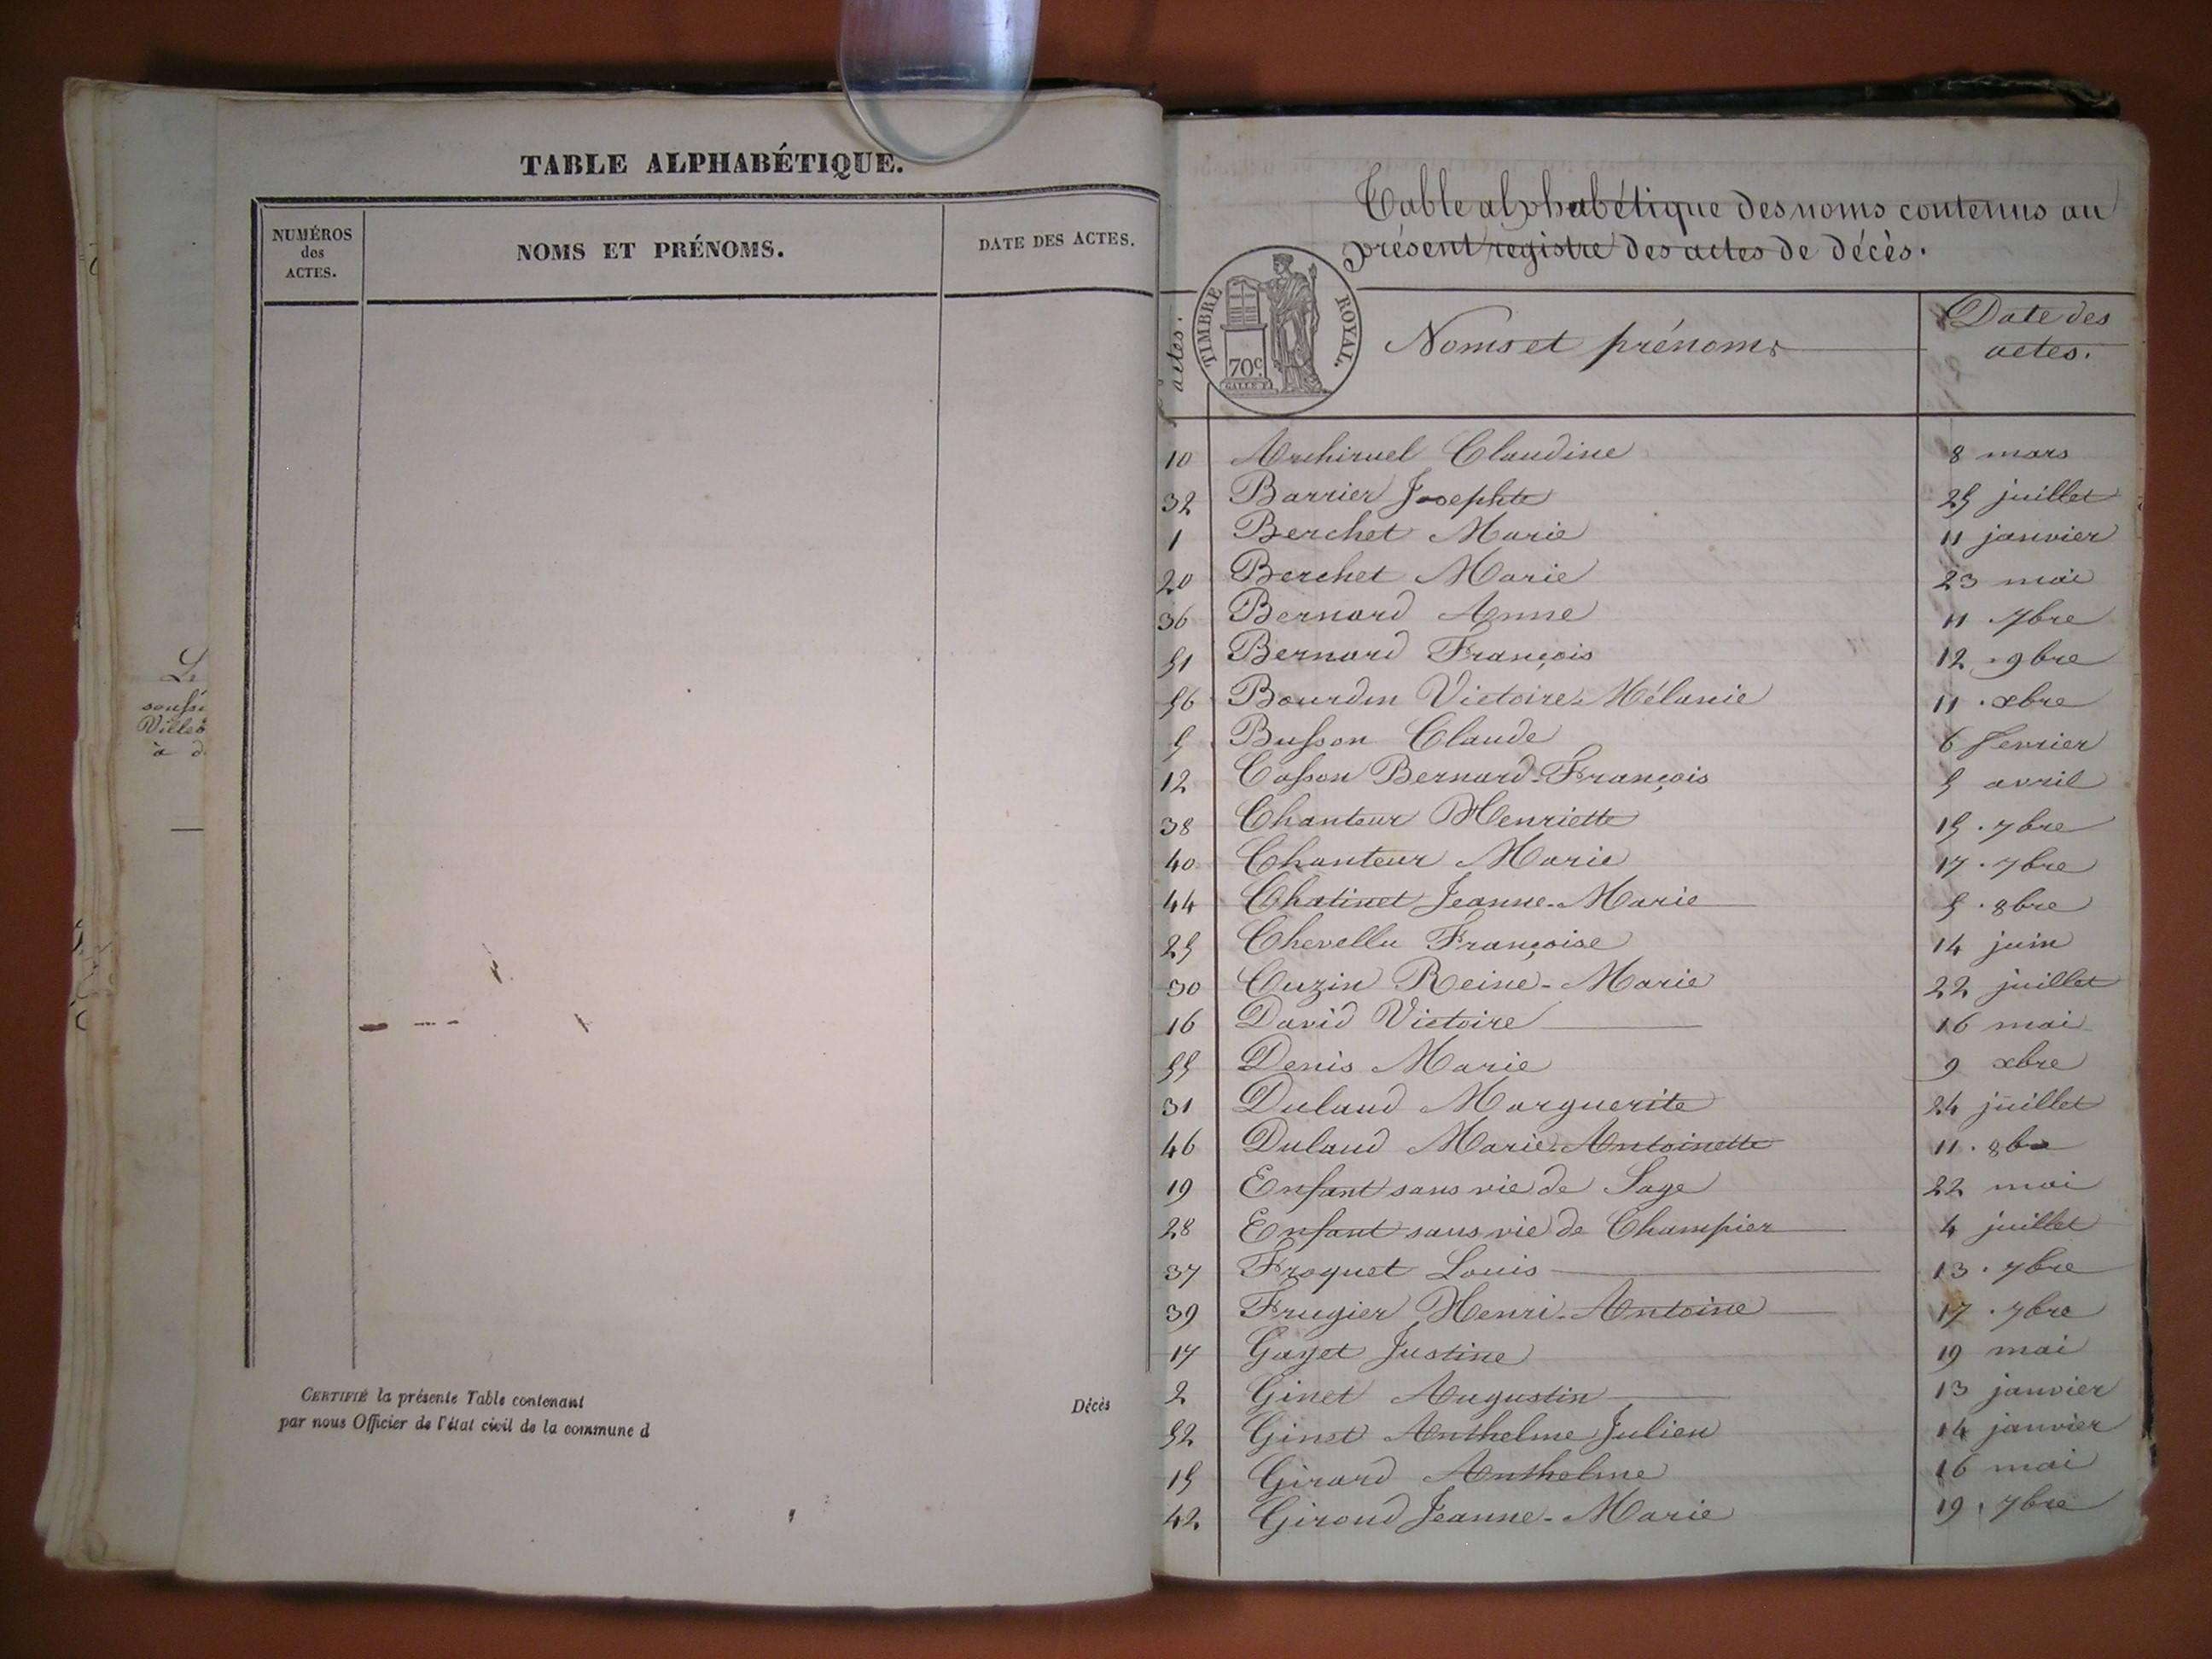 TABLE ALPHABÉTIQUE.
NUMÉROS
des
ACTES.
NOMS ET PRÉNOMS.
DATE DES ACTES.
CERTIFIÉ la présente Table contenant
par nous Officier de l'état civil de la commune d
Décès
Table alphabétique des noms contenus au
présent registre des actes de décès.
TIMBRE ROYAL.
70c
actes.
Noms et prénoms
Date des
actes.
10 Archiruel Claudine 8 mars
32 Barrier Josephte 25 juillet
1 Berchet Marie 11 janvier
20 Berchet Marie 23 mai
36 Bernard Anne 11 7bre
51 Bernard François 12 9bre
56 Bourdin Victoire-Mélanie 11 xbre
5 Busson Claude 6 fevrier
12 Casson Bernard-François 5 avril
38 Chanteur Henriette 15 7bre
40 Chanteur Marie 17 7bre
44 Chatinet Jeanne-Marie 5 8bre
25 Chevellu Françoise 14 juin
30 Cuzin Reine-Marie 22 juillet
16 David Victoire 16 mai
55 Denis Marie 9 xbre
31 Dulaud Marguerite 24 juillet
46 Dulaud Marie-Antoinette 11 8bre
19 Enfant sans vie de Sage 22 mai
28 Enfant sans vie de Champier 4 juillet
37 Froquet Louis 13 7bre
39 Frugier Henri-Antoine 17 7bre
17 Gayet Justine 19 mai
2 Ginet Augustin 13 janvier
52 Ginet Anthelme Julien 14 janvier
15 Girard Anthelme 16 mai
42 Giroud Jeanne-Marie 19 7bre